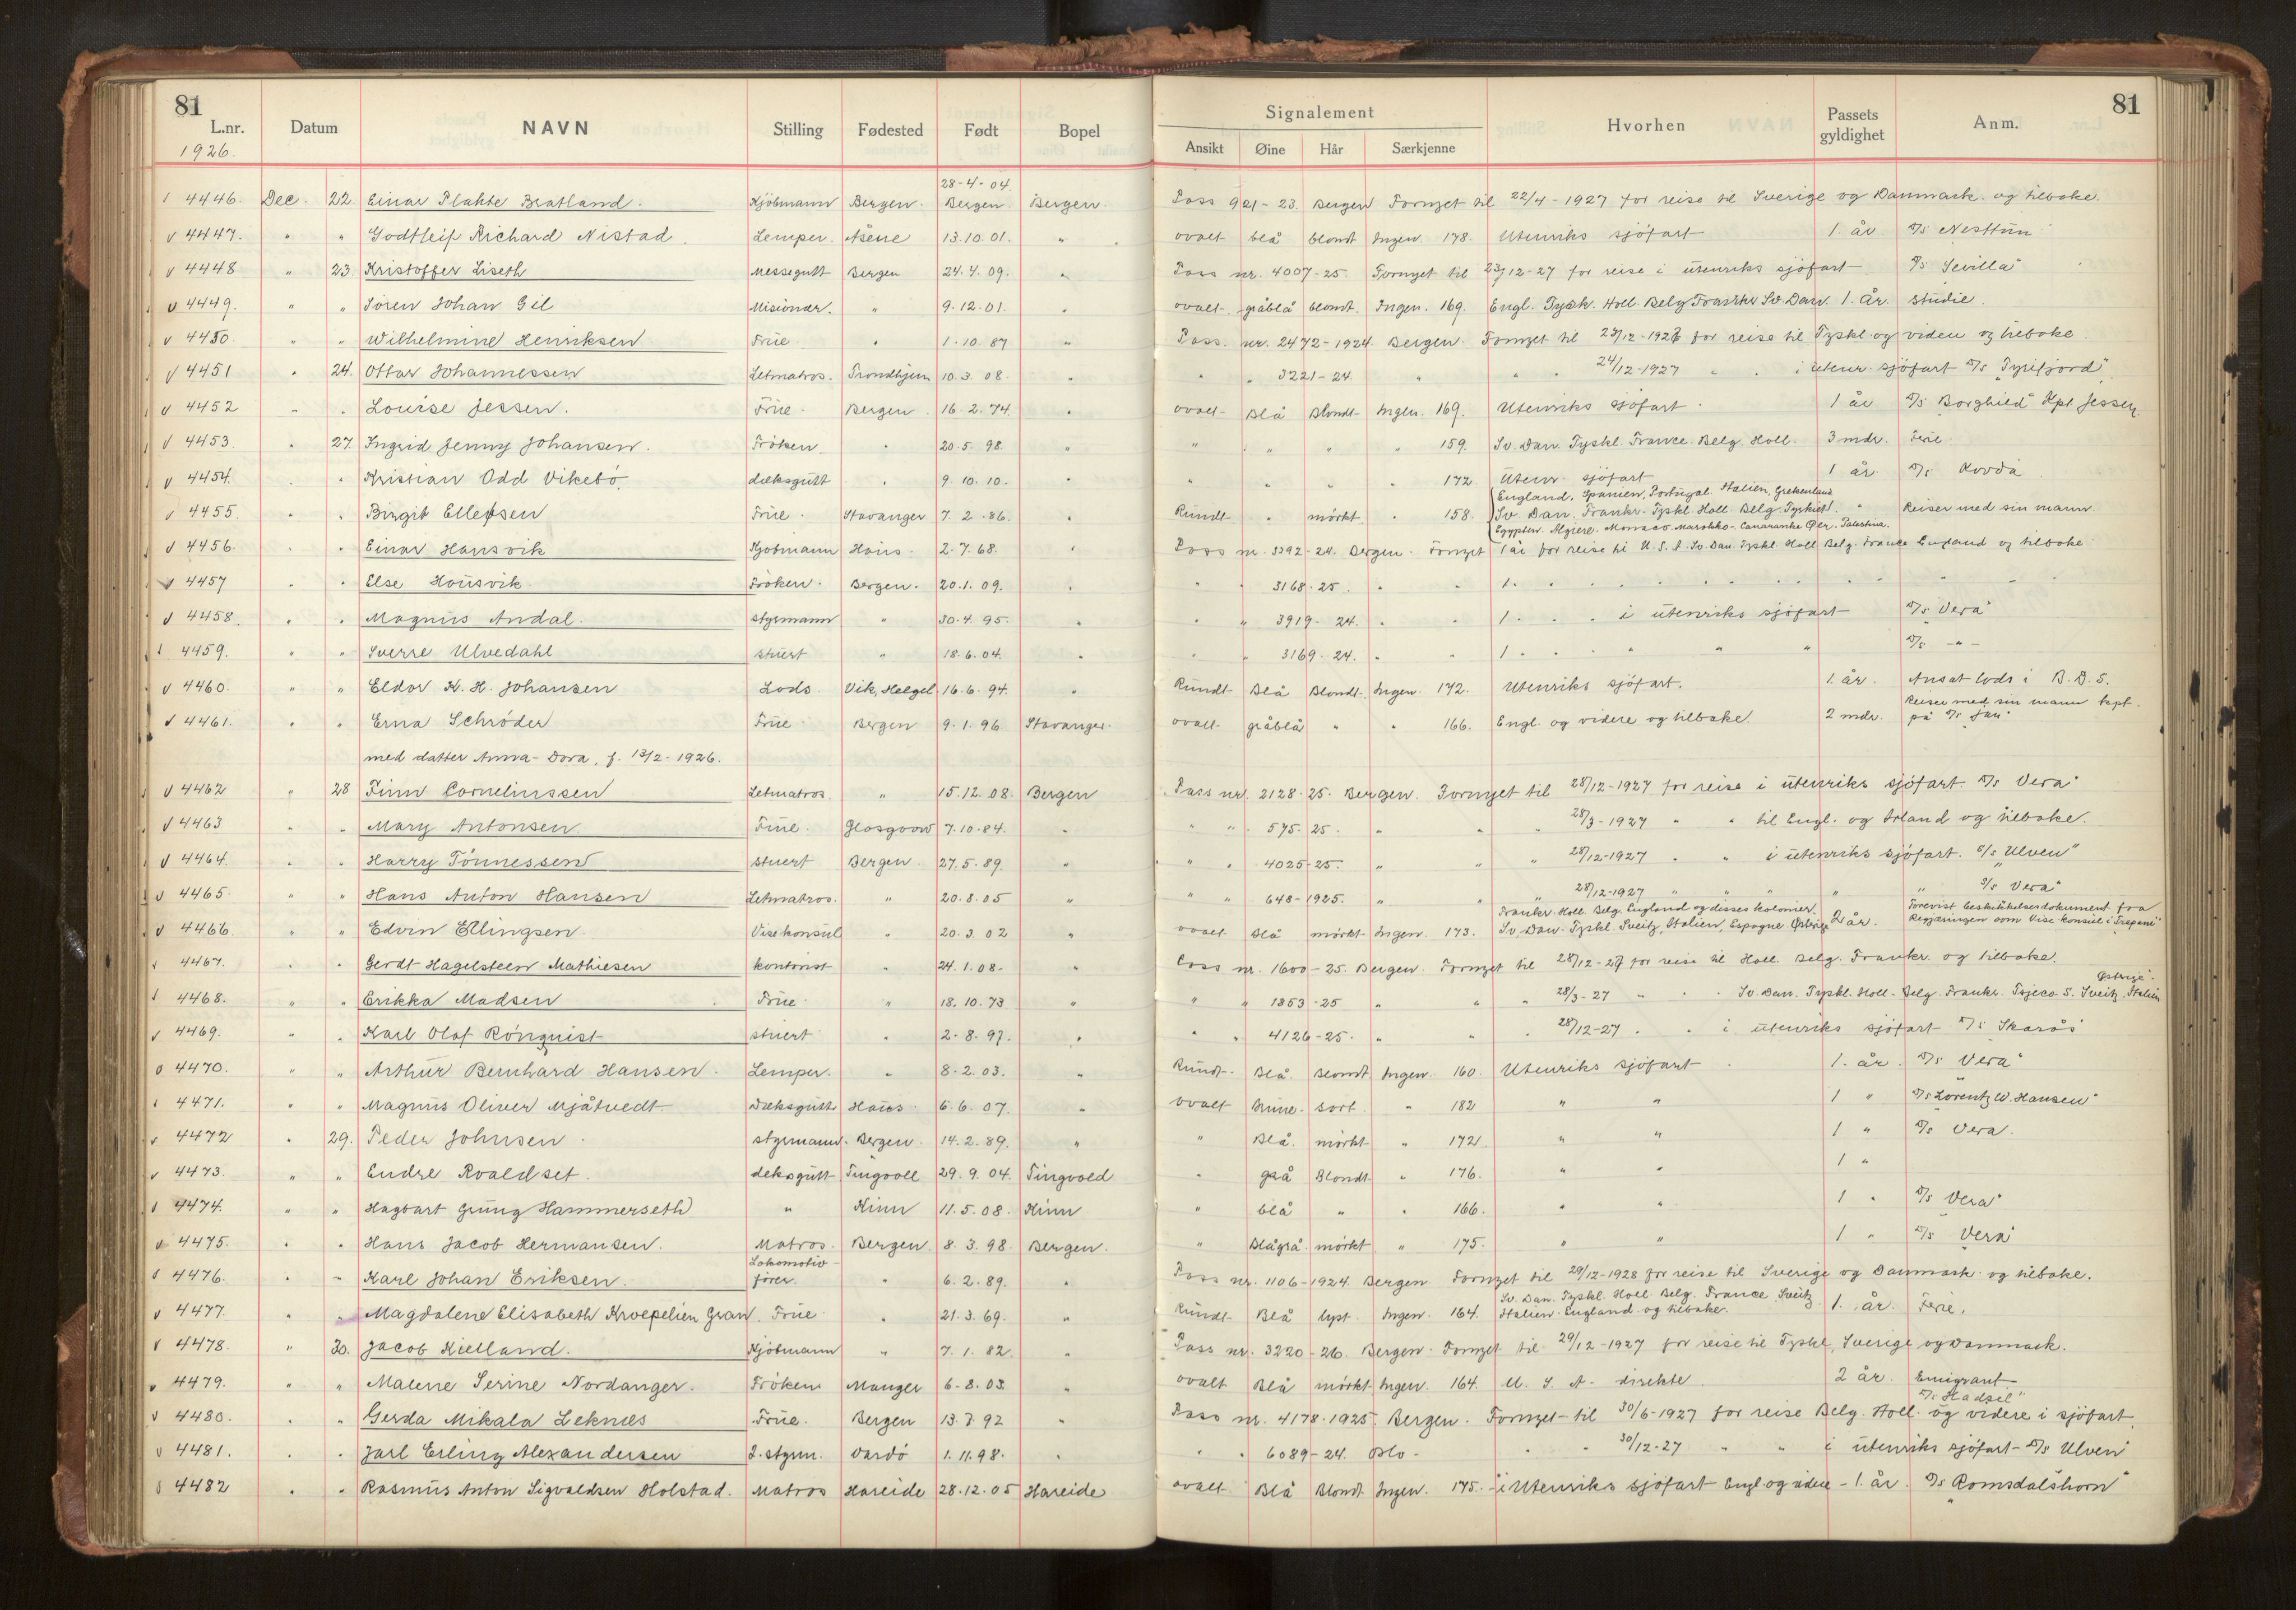 81
L.nr. Datum NAVN Stilling Fødested Født Bopel
Signalement
Ansikt Øine Hår Særkjenne Hvorhen Passets gyldighet Anm. 81
1926.
4446. Dec. 22. Einar Plahte Bratland. Kjöbmann Bergen. 28-4-04. Bergen. Bergen. Pass 921-23. Bergen Fornyet til 22/4-1927 for reise til Sverige og Danmark og tilbake.
4447. " " Godtleif Richard Nistad. Lemper. Åsene 13.10.01. " ovalt blå blondt Ingen 178. Utenriks sjöfart 1. år D/s Nesttun
4448 " 23. Kristoffer Liseth Messegutt Bergen 24.4.09. " Pass nr. 4007-25. Fornyet til 23/12-27 for reise i utenriks sjöfart D/s Sevilla"
4449. " " Sören Johan Gil Misionær. " 9.12.01. " ovalt gråblå blondt. Ingen. 169. Engl. Tysk. Holl. Belg Frankr Sv Dan. 1. år. studie.
4450 " " Wilhelmine Henriksen Frue. " 1.10.87 " Pass. nr. 2472-1924. Bergen. Fornyet til 23/12-1928 for reise til Tyskl og viden og tilbake.
4451 " 24. Ottar Johannessen Letmatros. Trondhjem 10.3.08. " " " 3221-24. " " " 24/12-1927 " " i utenr. sjöfart D/s "Tyrifjord".
4452 " " Louise Jessen. Frue. Bergen 16.2.74. " ovalt Blå Blondt Ingen. 169. Utenriks sjöfart. 1 år D/s Borghild" Kpt Jessen
4453. " 27. Ingrid Jenny Johansen. Fröken. " 20.5.98. " " " " " 159. Sv. Dan. Tyskl. France. Belg. Holl. 3 mdr. Ferie.
4454. " " Kristian Odd Vikebö. deksgutt " 9.10.10. " " " " " 172 Utenr. sjöfart 1 år. D/s Kovda
England. Spanien, Portugal. Italien, Grekenland
4455. " " Birgit Ellefsen Frue. Stavanger 7.2.86. " Rundt " mörkt " 158. Sv. Dan. Frankr. Tyskl. Holl. Belg. Tyrkiet. " Reiser med sin mann.
Egypten. Algiere. Monaco Marokko. Canariske Öer. Palestina.
4456. " " Einar Hausvik Kjöbmann Haus. 2.7.68. " Pass nr. 3392-24. Bergen. Fornyet 1 år for reise til U.S.A. Sv. Dan. Tyskl Holl Belg. France England og tilbake
4457 " " Else Housvik. Fröken. Bergen. 20.1.09. " " " 3168-25. " " 1. " " " " " " " " " "
4458. " " Magnus Andal. styrmann " 30.4.95. " " " 3919-24. " " 1. " " i utenriks sjöfart D/s Vera"
4459. " " Sverre Ulvedahl stuert " 18.6.04. " " " 3169-24. " " 1. " " " " " D/s -"-
4460. " " Eldor K. H. Johansen Lods Vik, Helgel. 16.6.94. " Rundt Blå Blondt Ingen. 172. Utenriks sjöfart. 1. år. Ansat lods i B.D.S.
Reiser med sin mann kapt.
4461. " " Erna Schröder Frue Bergen 9.1.96 Stavanger. ovalt gråblå " " 166. Engl. og videre og tilbake. 2 mdr. på D/s Jan"
med datter Anna-Dora, f. 13/2-1926.
4462 " 28 Finn Corneliussen Letmatros. " 15.12.08. Bergen Pass nr. 2128-25. Bergen. Fornyet til 28/12-1927 for reise i utenriks sjöfart D/s Vera"
4463 " " Mary Antonsen Frue. Glasgoow 7.10.84. " " " 575-25. " " " 28/3-1927 " " til Engl. og Irland og tilbake.
4464. " " Harry Tönnessen stuert Bergen. 27.5.89. " " " 4025-25. " " " 28/12-1927 " " i utenriks sjöfart. D/s "Ulven"
4465. " " Hans Anton Hansen Letmatros. " 20.8.05 " " " 648-1925. " " " 28/12-1927 " " " " " D/s Vera"
Frankr. Holl. Belg. England og disses kolonier. Forevist beskikkelsesdokument fra
4466. " " Edvin Ellingsen Visekonsul " 20.3.02 " ovalt Blå mörkt Ingen. 173. Sv. Dan. Tyskl. Sveitz, Italien, Espagne. Östrige 2 år. Regjeringen som Vise konsul i Trapani"
4467. " " Gerdt Hagelsteen Mathiesen kontorist " 24.1.08. " Pass nr. 1600-25. Bergen. Fornyet til 28/12-27 for reise til Holl. Belg. Frankr. og tilbake.
Östrige.
4468. " " Erikka Madsen Frue. " 18.10.73 " " " 1853-25 " " " 28/3-27 " " Sv. Dan. Tyskl. Holl. Belg. Frankr. Tsjeco-S. Sveitz. Italien
4469. " " Karl Olaf Rönquist stuert " 2.8.97. " " " 4126-25. " " " 28/12-27 " " i utenriks sjöfart D/s Skarås
4470. " " Arthur Bernhard Hansen. Lemper. " 8.2.03. " Rundt. Blå. Blondt Ingen. 160. Utenriks sjöfart 1. år. D/s Vera"
4471. " " Magnus Oliver Mjåtvedt Dæksgutt Haus 6.6.07. " ovalt Brune. sort " 182 " " 1 " D/s Lorentz W. Hansen"
4472 " 29. Peder Johnsen. styrmann. Bergen. 14.2.89. " " Blå. mörkt " 172. " " 1 " D/s Vera.
4473. " " Endre Roaldset. deksgutt Tingvoll 29.9.04. Tingvold " grå Blondt " 176. " " 1 "
4474. " " Hagbart Grung Hammerseth " Kinn 11.5.08. Kinn " blå " " 166. " " 1 " D/s Vera"
4475. " " Hans Jacob Hermansen. Matros. Bergen. 8.3.98. Bergen. " Blågrå mörkt " 175. " " 1 " D/s Vera
Lokomotiv-
4476. " " Karl Johan Eriksen. förer. " 6.2.89. " Pass nr. 1106-1924. Bergen. Fornyet til 29/12-1928 for reise til Sverige og Danmark og tilbake.
Sv. Dan. Tyskl. Holl. Belg. France. Sveitz.
4477. " " Magdalene Elisabeth Kroepelien Gran. Frue " 21.3.69. " Rundt Blå lyst. Ingen. 164. Italien. England og tilbake. 1. år. Ferie.
4478. " 30. Jacob Kielland. Kjöbmann " 7.1.82. " Pass nr. 3220-26. Bergen. Fornyet til 29/12-1927 for reise til Tyskl, Sverige og Danmark.
4479. " " Malene Serine Nordanger. Fröken Manger 6.8.03. " ovalt Blå mörkt Ingen. 164. U.S.A. direkte 2 år. Emigrant
D/s Hadsel"
4480. " " Gerda Mikala Leknes Frue. Bergen 13.7.92 " Pass nr. 4178-1925. Bergen. Fornyet til 30/6-1927 for reise Belg. Holl. og videre i sjöfart.
4481. " " Jarl Erling Alexandersen 2. styrm. Vardö 1.11.98. " " " 6089-24. Blo- " " 30/12-27 " " i utenriks sjöfart D/s Ulven
4482 " " Rasmus Anton Sigvaldsen Holstad. Matros Hareide 28.12.05 Hareide ovalt Blå Blondt Ingen. 175. i Utenriks sjöfart Engl og videre - 1. år. D/s "Romsdalshorn"